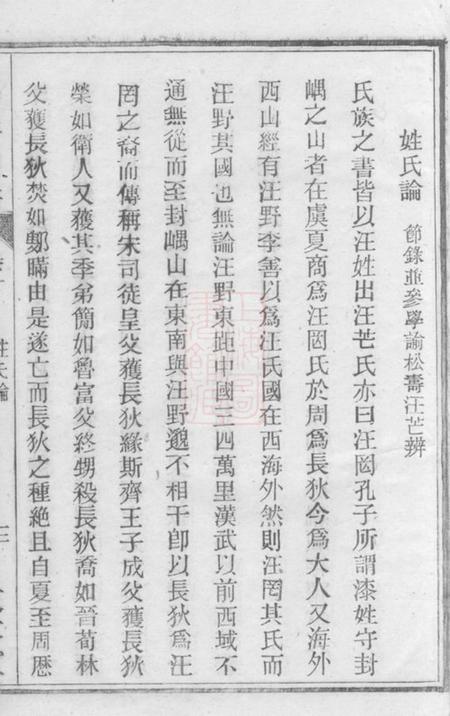 姓氏論　節錄並參學諭松壽汪芒辨
氏族之書皆以汪姓出汪芒氏亦曰汪罔孔子所謂漆姓守封
嵎之山者在虞夏商爲汪罔氏於周爲長狄今爲大人又海外
西山經有汪野李善以爲汪氏國在西海外然則汪罔其氏而
汪野其國也無論汪野東距中國三四萬里漢武以前西域不
通無從而至封嵎山在東南與汪野邈不相干卽以長狄爲汪
罔之裔而傳稱宋司徒皇父獲長狄緣斯齊王子成父獲長狄
榮如衛人又獲其季弟簡如魯富父終甥殺長狄喬如晉荀林
父獲長狄焚如鄋瞞由是遂亡而長狄之種絶且自夏至周歷
姓氏論